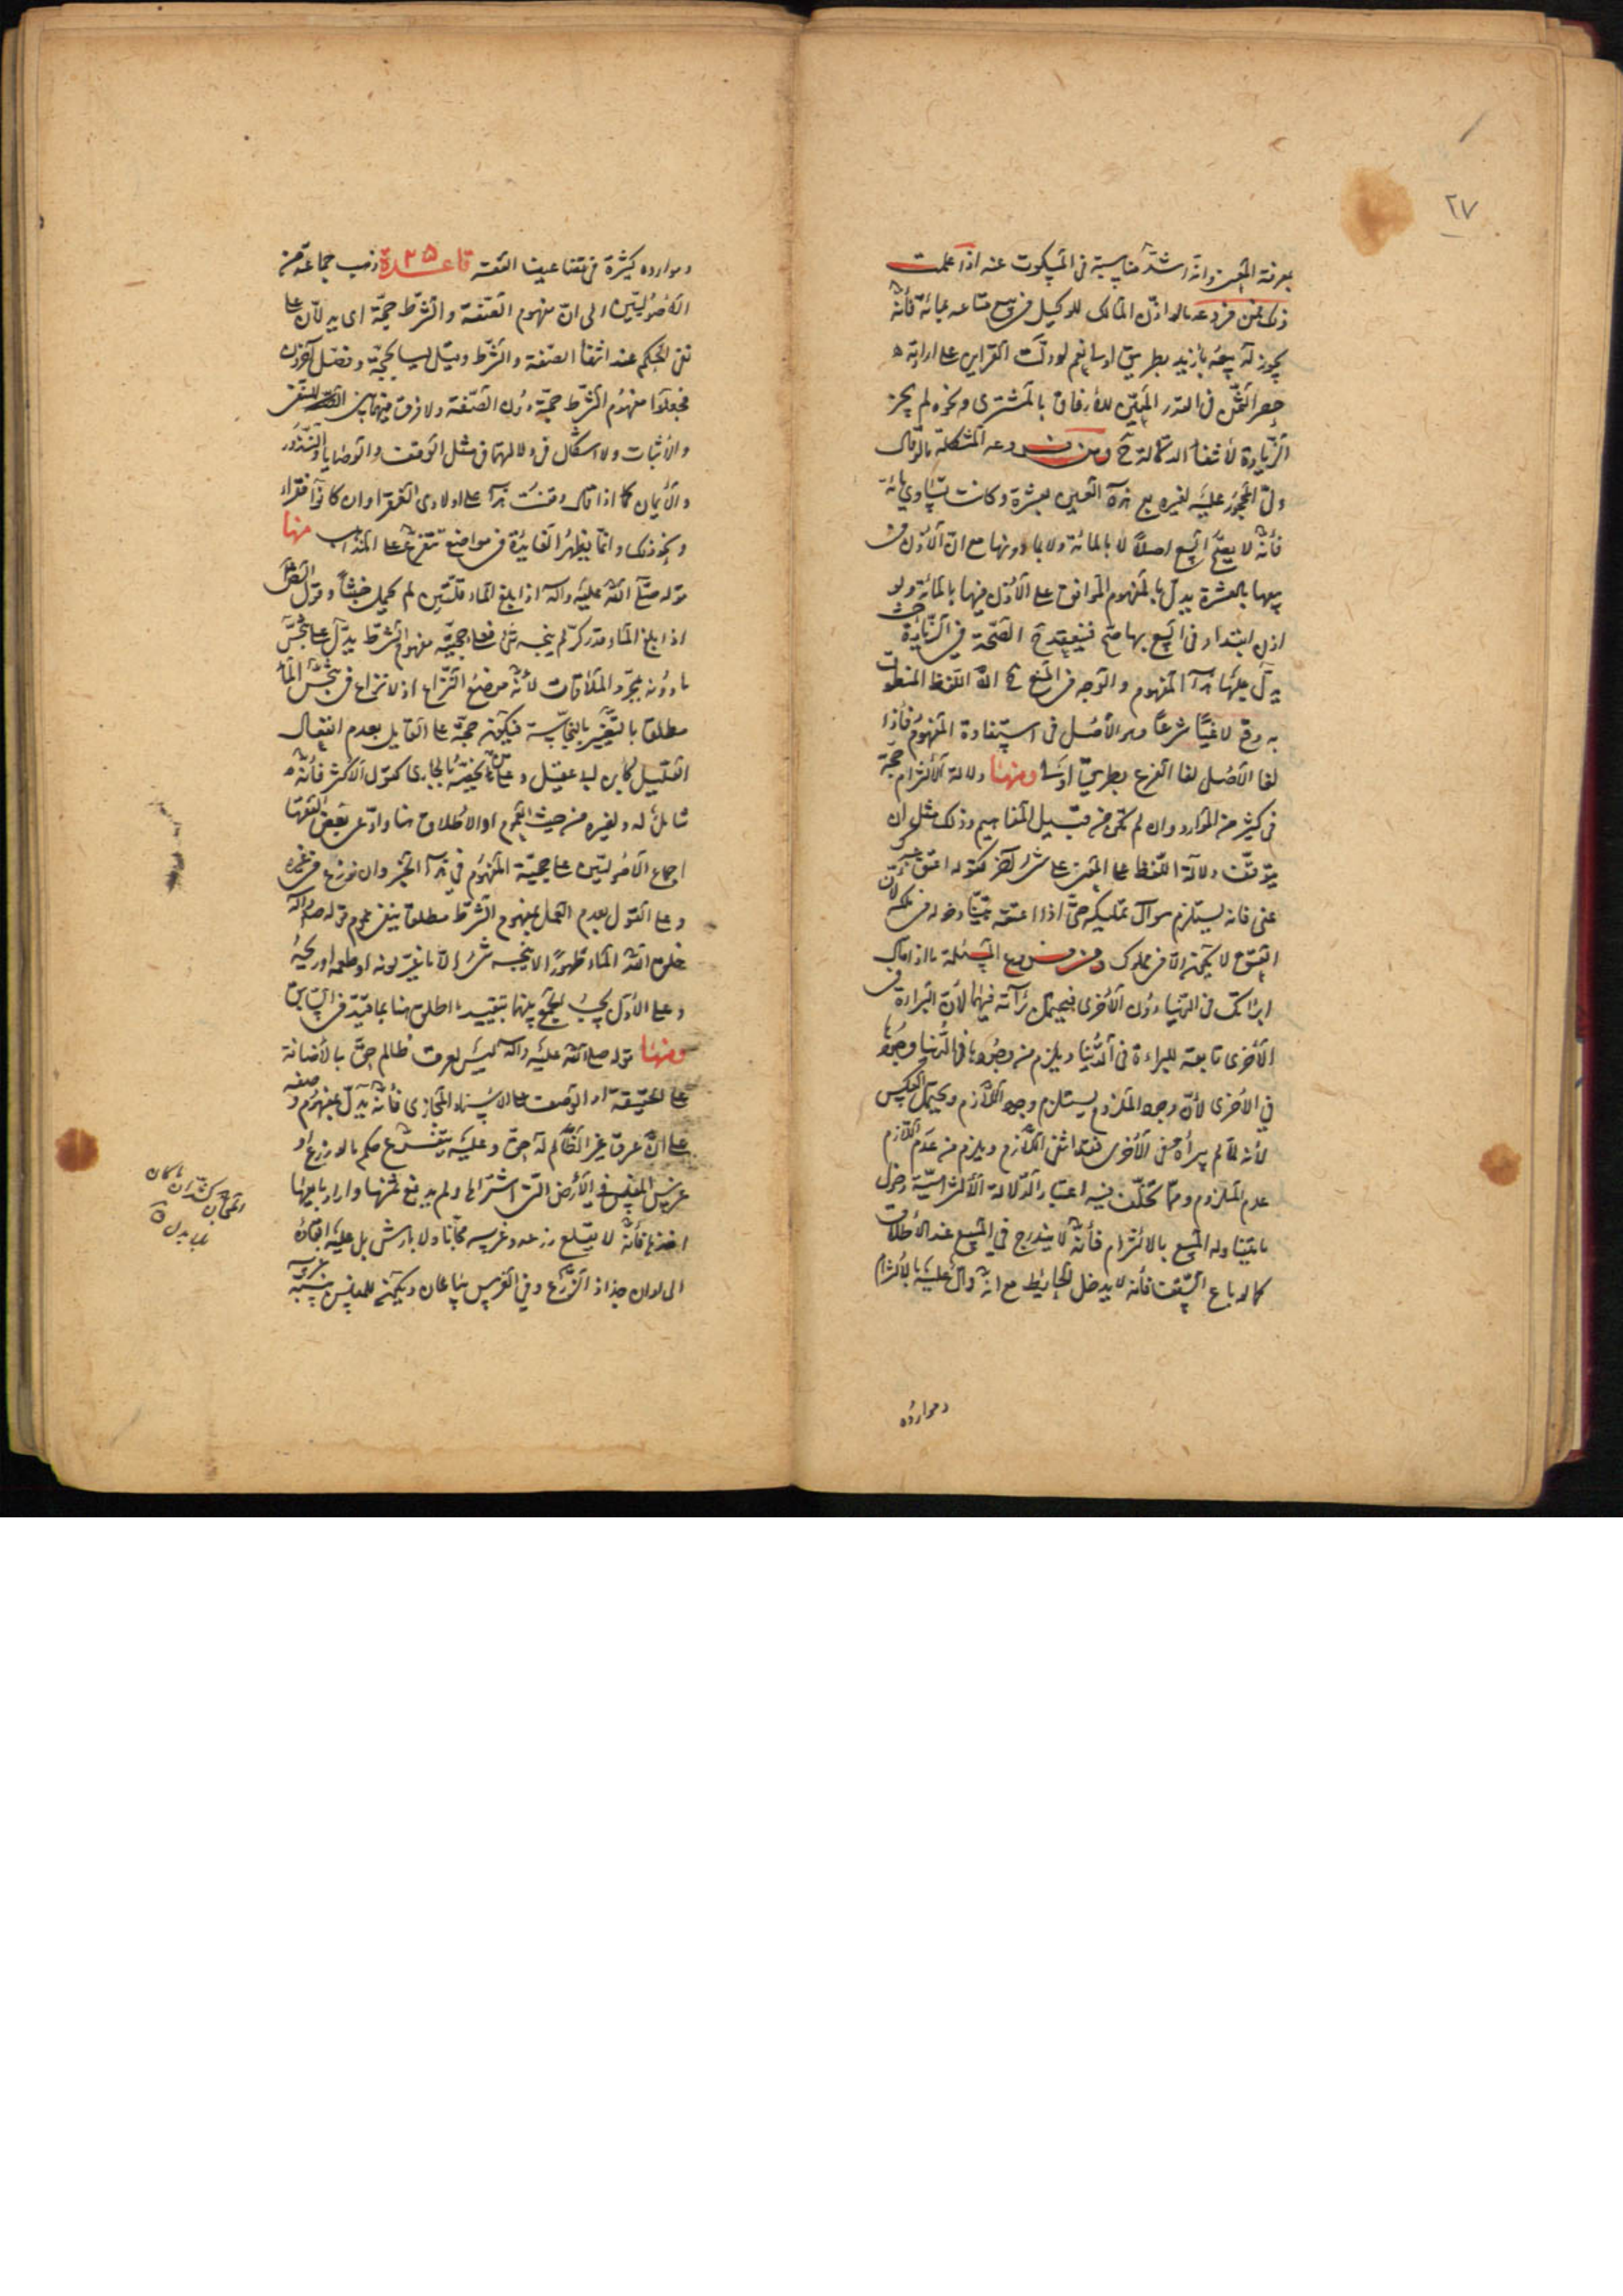 ٢٧
بمعرفة المعنى وانه اشد مناسبة فى المسكوت عنه اذا علمت
ذلك فمن فروعه ما لو اذن المالك للوكيل فى بيع متاعه بمائة فانه
يجوز له بيعه بازيد بطريق اولى نعم لو دلت القراين على ارادته
حصر الثمن فى القدر المعين للارفاق بالمشترى ونحوه لم يجز
الزيادة لانتفاء الدلالة ح ومن فروعه المشكلة ما لو قال
ولى المحجور عليه لغيره بع هذه العين بعشرة وكانت تساوي مائة
فانه لا يصح البيع اصلا لا بالمائة ولا بما دونها مع ان الاذن فى
بيعها بالعشرة يدل بالمفهوم الموافق على الاذن فيها بالمائة ولو
اذن ابتداء فى البيع بها صح فينبغي الصحة في الزيادة حيث
يدل عليها هذا المفهوم والوجه فى المنع ح ان اللفظ المنطوق
به وقع لاغيا شرعا وهو الاصل فى استفادة المفهوم فاذا
لغا الاصل لغا الفرع بطريق اولى ومنها دلالة الالتزام حجة
فى كثير من الموارد وان لم تكن من قبيل المفاهيم وذلك مثل ان
يتوقف دلالة اللفظ على المعنى على شى اخر كقوله اعتق عبدك
عنى فانه يستلزم سوال تمليكه حتى اذا اعتقه تبينا دخوله فى ملكه لان
العتق لا يكون الا فى مملوك ومن فروع المسئلة ما اذا قال
ابراتك فى الدنيا دون الاخرى فيحتمل برآته فيهما لان البراءة فى
الاخرى تابعة للبراءة فى الدنيا ويلزم من وجودها فى الدنيا وجودها
في الاخرى لان وجود الملزوم يستلزم وجود اللازم ويحتمل العكس
لانه لما لم يبراه فى الاخرى فقد انتفى اللازم ويلزم من عدم اللازم
عدم الملزوم ومما تخلف فيه اعتبار الدلالة الالتزامية دخول
ما يتناوله المبيع بالالتزام فانه لا يندرج في البيع عند الاطلاق
كما لو باع السقف فانه لا يدخل الحايط مع انه دال عليه بالالتزام
وموارده
وموارده كثيرة فى تضاعيف الفقه قاعدة ٢٥ ذهب جماعة من
الاصوليين الى ان مفهوم الصفة والشرط حجة اى يدلان على
نفى الحكم عند انتفاء الصفة والشرط وقيل ليسا بحجة وفصل آخرون
فجعلوا مفهوم الشرط حجة دون الصفة ولا فرق فيهما بين النفى
والاثبات ولا اشكال فى دلالتهما فى مثل الوقف والوصايا والنذور
والايمان كما اذا قال وقفت هذا على اولادى الفقراء او ان كانوا فقراء
ونحو ذلك وانما يظهر الفايدة فى مواضع تتفرع على المذاهب منها
قوله صلى الله عليه وآله اذا بلغ الماء قلتين لم يحمل خبثا وقول الصادق
اذا بلغ الماء قدر كر لم ينجسه شى فعلى حجية مفهوم الشرط يدل على تنجس
ما دونه بمجرد الملاقات لانه موضع النزاع اذ لا نزاع فى تنجس الماء
مطلقا بالتغير بالنجاسة فيكون حجة على القايل بعدم انفعال
القليل كابن ابى عقيل وعلى من يخصه بالجارى كقول الاكثر فانه
شامل له ولغيره من حيث العموم او الاطلاق هنا وادعى بعض الفقها
اجماع الاصوليين على حجية المفهوم في هذا الخبر وان نوزع فى غيره
وعلى القول بعدم العمل بمفهوم الشرط مطلقا ينفى عموم قوله صلى الله عليه وآله
خلق الله الماء طهورا لا ينجسه شى الا ما غير لونه او طعمه او ريحه
وعلى الاول يجب الجمع بينهما بتقييد ما اطلق هنا بما قيد فى السابق
ومنها قوله صلى الله عليه وآله ليس لعرق ظالم حق بالاضافة
على الحقيقة او الوصف على الاسناد المجازى فانه يدل بمفهوم وصفه
على ان عرق غير الظالم له حق وعليه يتفرع حكم ما لو زرع او
غرس المفلس في الارض التى اشتراها ولم يدفع ثمنها واراد بايعها
اخذها فانه لا يقلع زرعه وغرسه مجانا ولا بارش بل عليه ابقاؤه
الى اوان جذاذ الزرع وفي الغرس يباعان ويكون للمفلس بنسبة غرسه